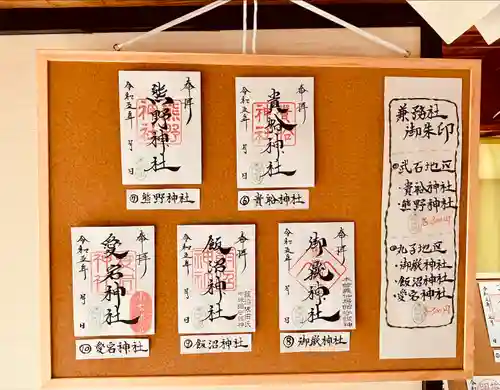 奉拝
熊野神社
令和五年 月 日
⑦熊野神社
奉拝
貴船神社
令和五年 月 日
⑥貴船神社
奉拝
愛宕神社
令和五年 月 日
⑩愛宕神社
奉拝
飯沼神社
令和五年 月 日
⑨飯沼神社
奉拝
御嶽神社
令和五年 月 日
⑧御嶽神社
兼務社
御朱印
武石地区
・貴船神社
・熊野神社
丸子地区
・御嶽神社
・飯沼神社
・愛宕神社